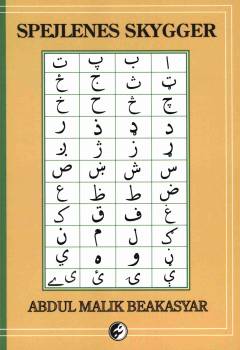 SPEJLENES SKYGGER
ا ب پ ت
ټ ث ج ځ
چ څ ح خ
د ډ ذ ر
ړ ز ژ ږ
س ش ښ ص
ض ط ظ ع
غ ف ق ک
ګ ل م ن
ڼ و ه ي
ې ی ئ ۍ
ABDUL MALIK BEAKASYAR